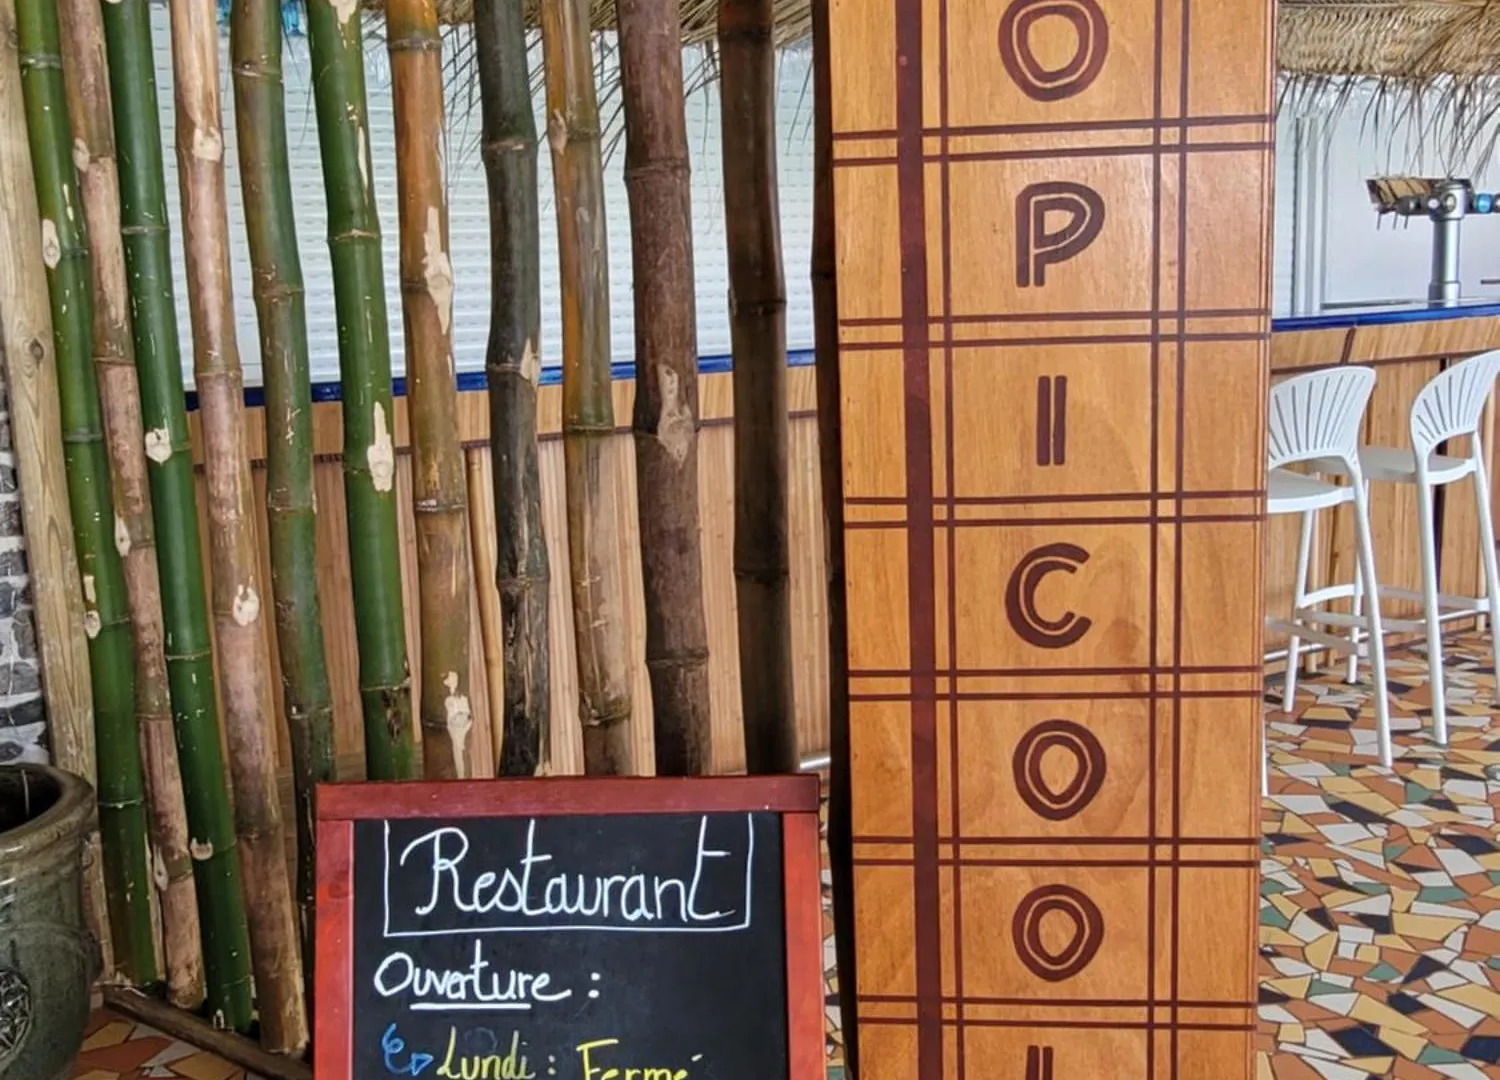 O
P
I
C
O
O
Restaurant
Ouverture :
Lundi : Fermé